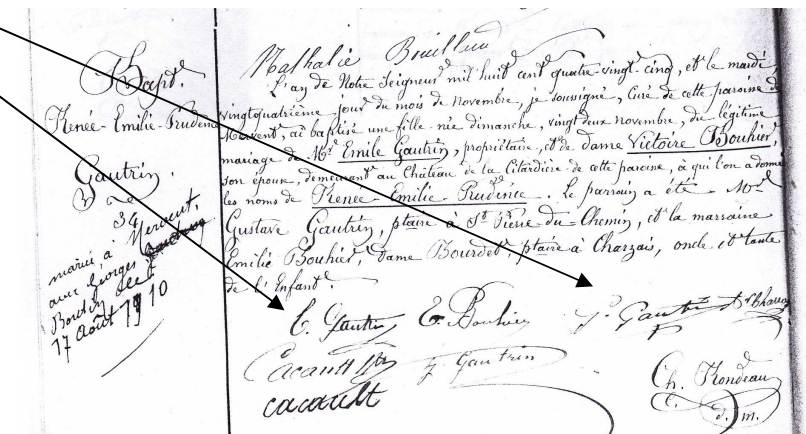 Nathalie Bouilleau
Bapt.
Renée-Emilie-Prudence
Gautrin.
34
marié à Mervent
avec Georges
Bordin
17 Août 1910
L'an de Notre Seigneur mil huit cent quatre-vingt-cinq, et le mardi
vingtquatrième jour du mois de Novembre, je soussigné, Curé de cette paroisse de
Mervent, ai baptisé une fille née dimanche, vingt deux novembre, du légitime
mariage de Mr Emile Gautrin, propriétaire, et de dame Victoire Bouhier,
son épouse, demeurant au Château de la Citardière de cette paroisse, à qui l'on a donné
les noms de Renée-Emilie-Prudence. Le parrain a été Mr
Gustave Gautrin, ptaire à St Pierre-du-Chemin, et la marraine
Emilie Bouhier, dame Bourdet, ptaire à Charzais, oncle et tante
de l'Enfant.
E. Gautrin E. Bouhier G. Gautrin
Cacault F. Gautrin
cacault
Ch. Rondeau
c. d. m.